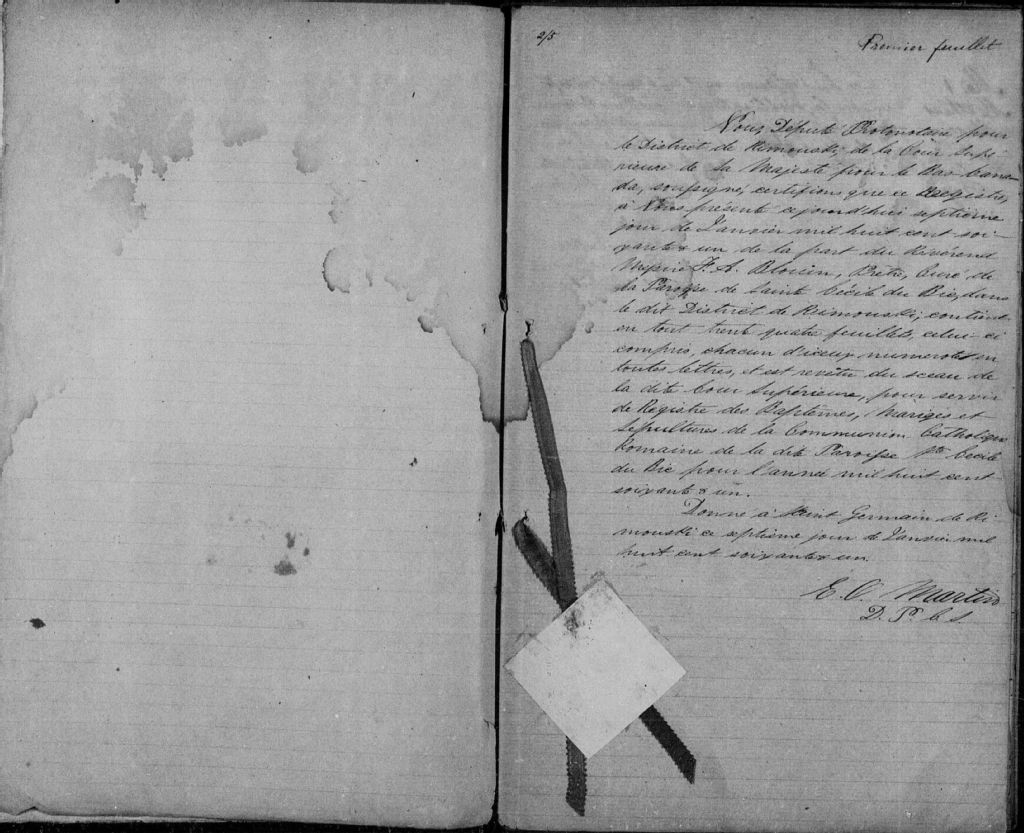 2/5
Premier feuillet
Nous, Député Protonotaire pour
le District de Rimouski, de la Cour Supé-
rieure de Sa Majesté pour le Bas-Cana-
da, soussigné, certifions que ce Registre,
à Nous présenté ce jourd'hui septième
jour de Janvier mil huit cent soi-
xante & un de la part du Révérend
Messire F. A. Blouin, Prêtre, Curé de
la Paroisse de Sainte Cécile du Bic, dans
le dit District de Rimouski, contient
en tout trente quatre feuillets, celui-ci
compris, chacun d'iceux numerotés en
toutes lettres, et est revêtu du sceau de
la dite Cour Supérieure, pour servir
de Registre des Baptêmes, Mariges et
Sépultures de la Communion Catholique
Romaine de la dite Paroisse Ste Cécile
du Bic pour l'année mil huit cent
soixante & un.
Donné à Saint Germain de Ri-
mouski ce septième jour de Janvier mil
huit cent soixante & un.
E. C. Martin
D. P. C. S.